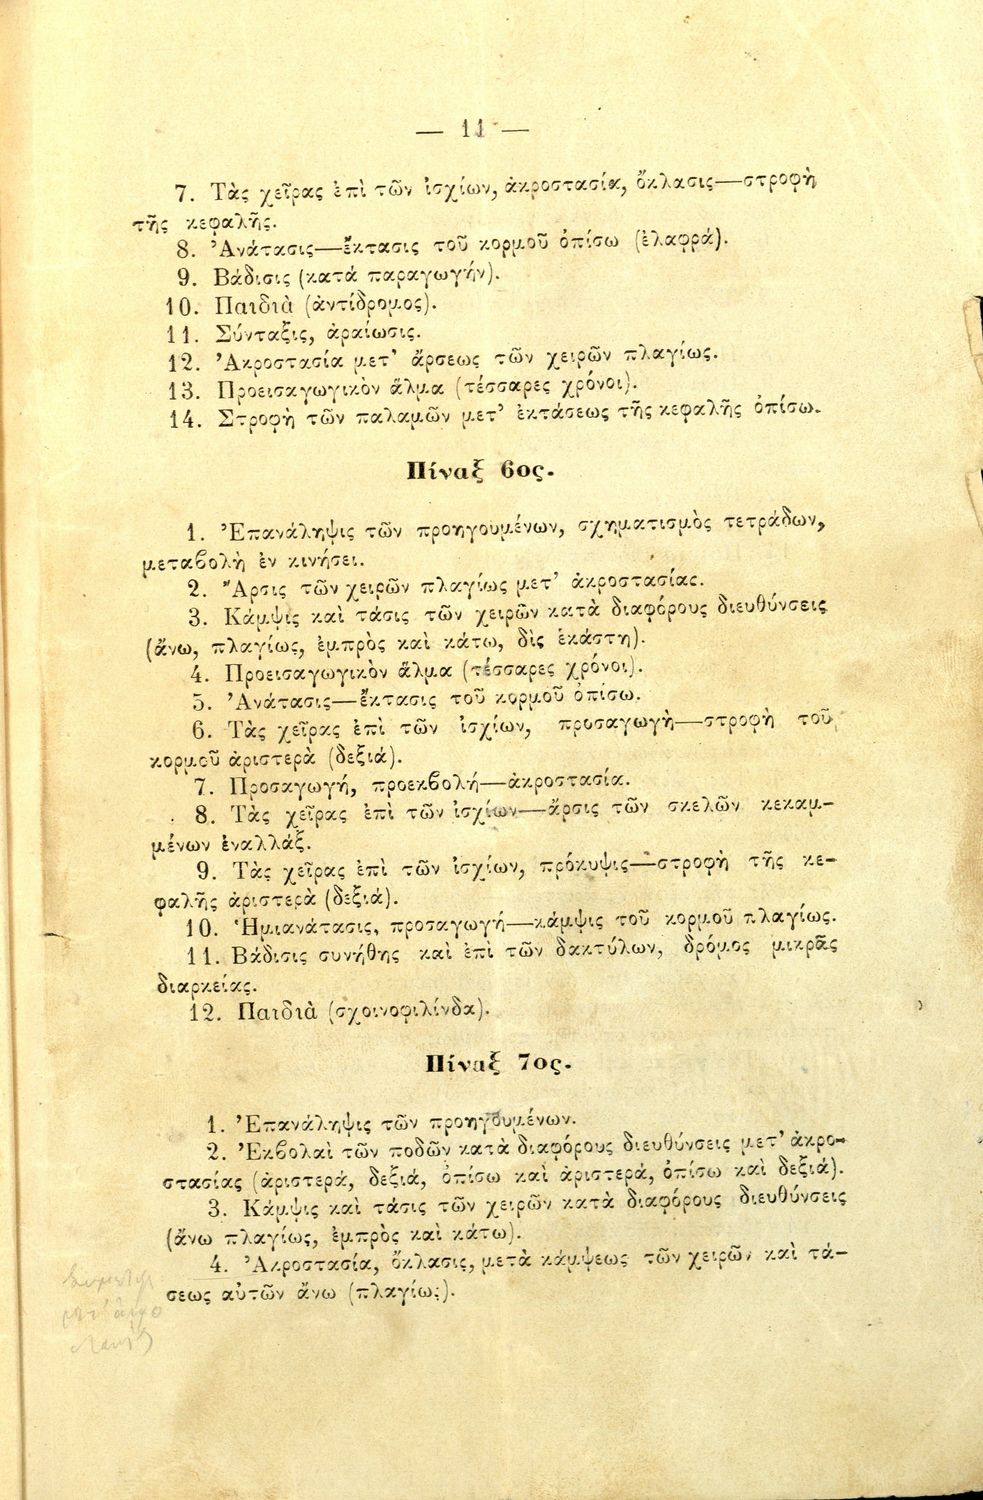 — 11 —
7. Τὰς χεῖρας ἐπὶ τῶν ἰσχίων, ἀκροστασία, ὄκλασις—στροφὴ
τῆς κεφαλῆς.
8. Ἀνάτασις—ἔκτασις τοῦ κορμοῦ ὀπίσω (ἐλαφρά).
9. Βάδισις (κατὰ παραγωγήν).
10. Παιδιὰ (ἀντίδρομος).
11. Σύνταξις, ἀραίωσις.
12. Ἀκροστασία μετ' ἄρσεως τῶν χειρῶν πλαγίως.
13. Προεισαγωγικὸν ἅλμα (τέσσαρες χρόνοι).
14. Στροφὴ τῶν παλαμῶν μετ' ἐκτάσεως τῆς κεφαλῆς ὀπίσω.
Πίναξ 6ος.
1. Ἐπανάληψις τῶν προηγουμένων, σχηματισμὸς τετράδων,
μεταβολὴ ἐν κινήσει.
2. Ἄρσις τῶν χειρῶν πλαγίως μετ' ἀκροστασίας.
3. Κάμψις καὶ τάσις τῶν χειρῶν κατὰ διαφόρους διευθύνσεις
(ἄνω, πλαγίως, ἐμπρὸς καὶ κάτω, δὶς ἑκάστη).
4. Προεισαγωγικὸν ἅλμα (τέσσαρες χρόνοι).
5. Ἀνάτασις—ἔκτασις τοῦ κορμοῦ ὀπίσω.
6. Τὰς χεῖρας ἐπὶ τῶν ἰσχίων, προσαγωγὴ—στροφὴ τοῦ
κορμοῦ ἀριστερὰ (δεξιά).
7. Προσαγωγή, προεκβολή—ἀκροστασία.
8. Τὰς χεῖρας ἐπὶ τῶν ἰσχίων—ἄρσις τῶν σκελῶν κεκαμ-
μένων ἐναλλάξ.
9. Τὰς χεῖρας ἐπὶ τῶν ἰσχίων, πρόκυψις—στροφὴ τῆς κε-
φαλῆς ἀριστερὰ (δεξιά).
10. Ἡμιανάτασις, προσαγωγή—κάμψις τοῦ κορμοῦ πλαγίως.
11. Βάδισις συνήθης καὶ ἐπὶ τῶν δακτύλων, δρόμος μικρᾶς
διαρκείας.
12. Παιδιὰ (σχοινοφιλίνδα).
Πίναξ 7ος.
1. Ἐπανάληψις τῶν προηγουμένων.
2. Ἐκβολαὶ τῶν ποδῶν κατὰ διαφόρους διευθύνσεις μετ' ἀκρο-
στασίας (ἀριστερά, δεξιά, ὀπίσω καὶ ἀριστερά, ὀπίσω καὶ δεξιά).
3. Κάμψις καὶ τάσις τῶν χειρῶν κατὰ διαφόρους διευθύνσεις
(ἄνω πλαγίως, ἐμπρὸς καὶ κάτω).
4. Ἀκροστασία, ὄκλασις, μετὰ κάμψεως τῶν χειρῶν καὶ τά-
σεως αὐτῶν ἄνω (πλαγίως).